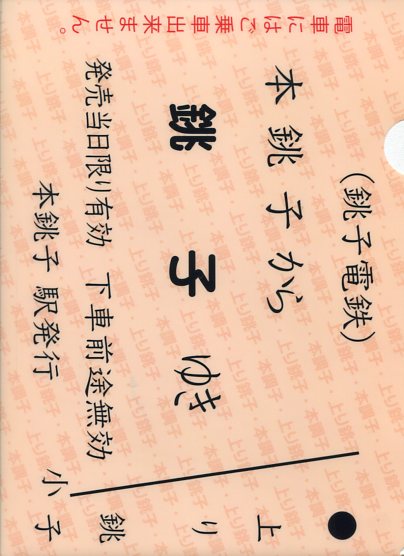 (銚子電鉄)
本銚子から
銚子ゆき
発売当日限り有効 下車前途無効
本銚子駅発行
小
上り銚子
電車にはご乗車出来ません。